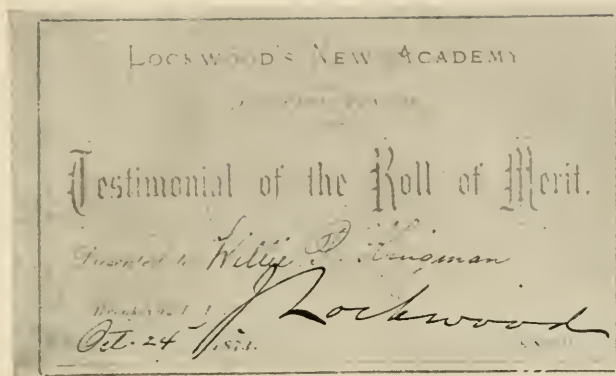 LOCKWOOD'S NEW ACADEMY
Testimonial of the Roll of Merit.
Presented to Willie P. Kingman
J Lockwood
Oct. 24